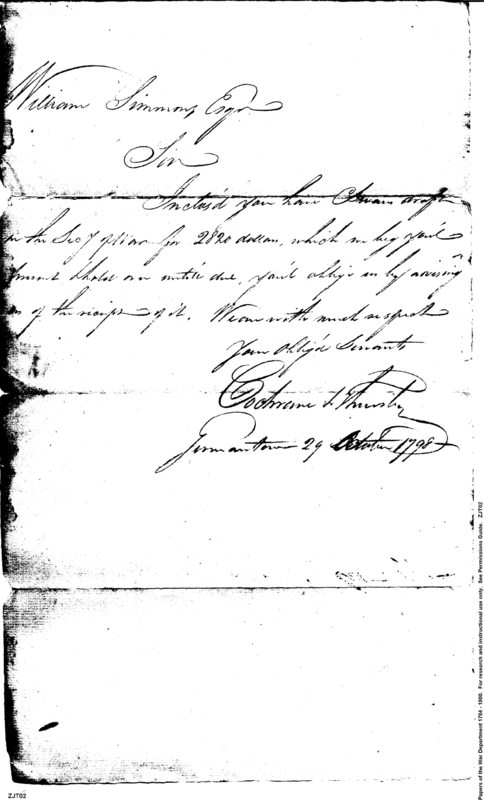 William Simmons Esqr
Sir
Inclos'd you have Swans draft
on the Secy of War for 2820 dollars, which we beg you'l
hold over untill due, you'l oblige us by advising
us of the receipt of it. We are with much respect
Your Oblig'd Servants
Cochrane & Thursby
Germantown 29 October 1798
ZJT02
Papers of the War Department 1784 - 1800. For research and instructional use only. See Permissions Guide. ZJT02